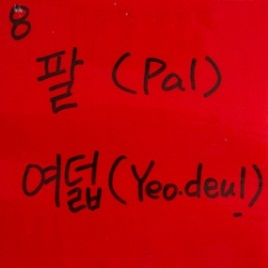 8
팔 (Pal)
여덟 (Yeo.deul)